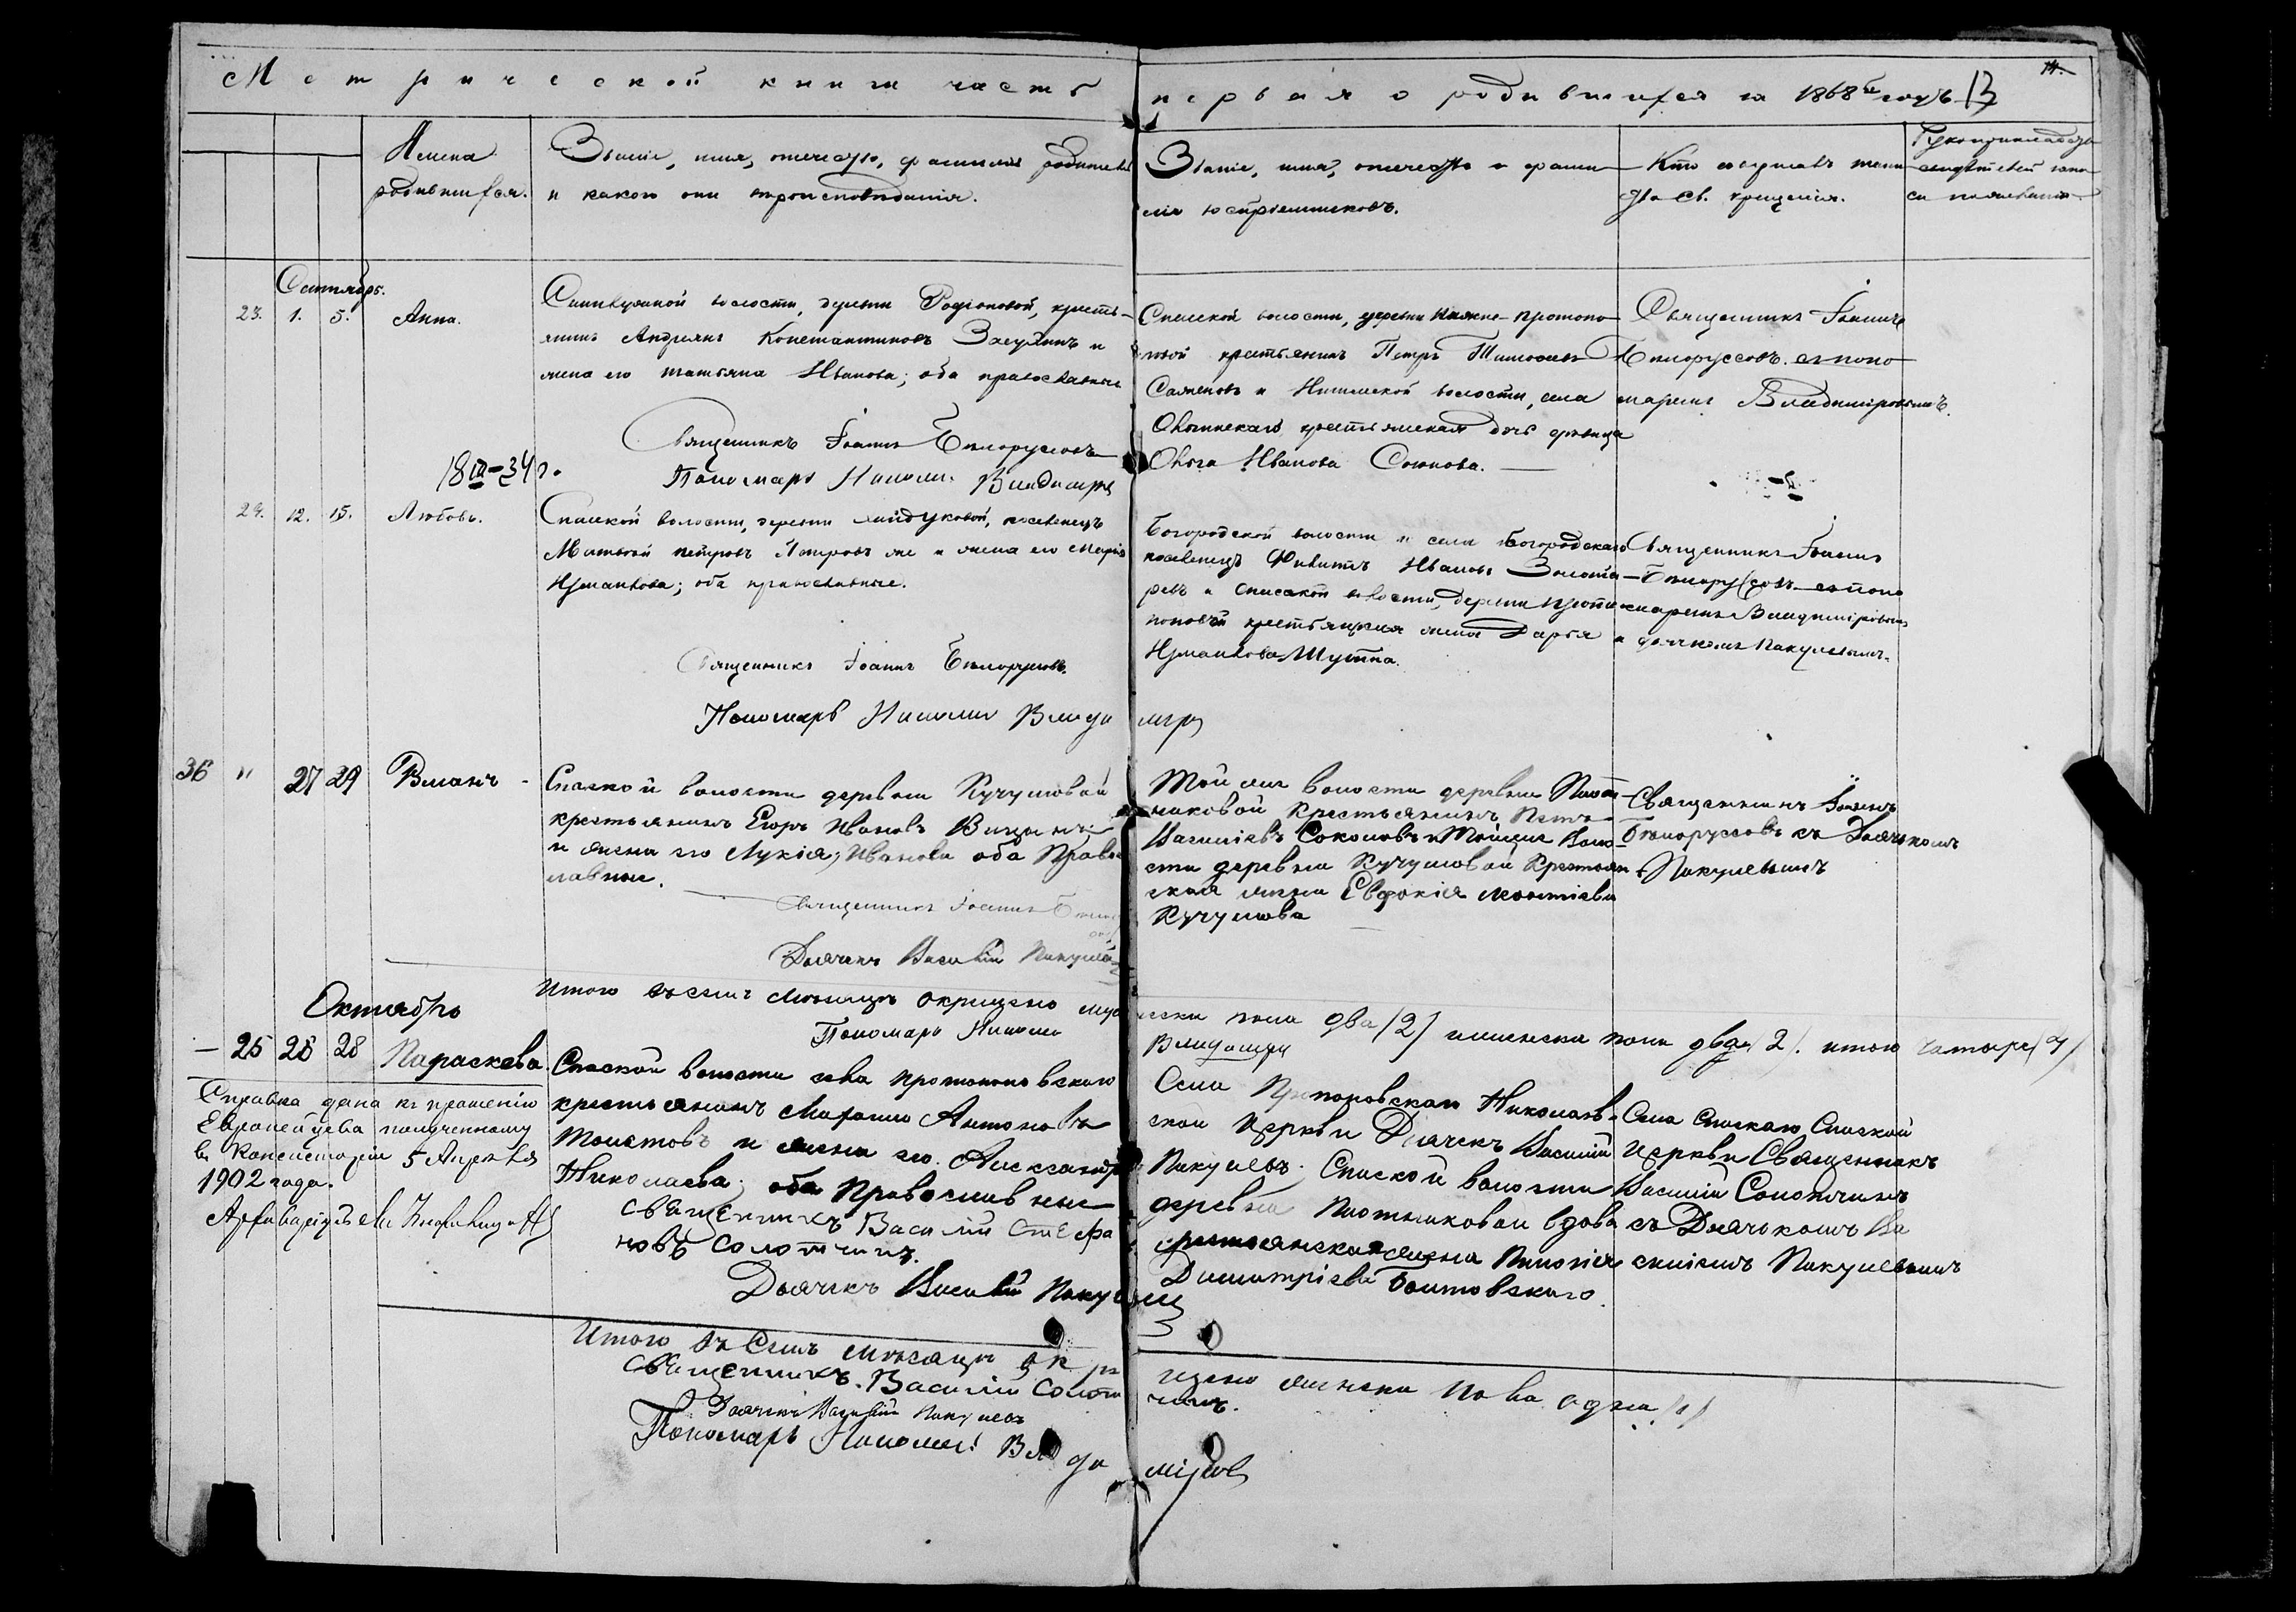 Метрической книги часть
первая о родившихся за 1868й годъ 13
14.
Имена
родившихся.
Званіе, имя, отечество, фамилія родителей
и какого они вѣроисповѣданія.
Званіе, имя, отечество и фами-
лія воспріемниковъ.
Кто совершалъ таин-
ство Св. крещенія.
Рукоприкладство
свидѣтелей запи-
си по желанію.
Сентябрь.
23. 1. 5. Анна.
волости, деревни Родіоновой, кресть-
янинъ Андреянъ Константиновъ и
жена его Татьяна Иванова; оба православные
Священникъ Іоаннъ Бѣлоруссовъ
Пономарь Николай Владиміръ
Спасской волости, деревни Нижне-Протопо-
повой крестьянинъ Петръ Тимофеевъ
и волости, села
крестьянская дочь дѣвица
Ольга Иванова
Священникъ Іоаннъ
Бѣлоруссовъ съ поно
маремъ Владиміровымъ.
18 III-34 г.
24. 12. 15. Любовь.
Спасской волости, деревни поселенецъ
Матвей Петровъ Петровъ же и жена его Марія
оба православные.
Священникъ Іоаннъ Бѣлоруссовъ.
Пономарь Николай Влади
міръ
Богородской волости и села Богородскаго
поселенецъ Иванов Золота-
ревъ и Спасской волости, деревни Прото
поповой крестьянская жена Дарья
Священникъ Іоаннъ
Бѣлоруссовъ съ поно
маремъ Владиміровымъ
и дьячкомъ Пакулевымъ.
36 " 27 29
Спаской волости деревни Кучумовой
крестьянинъ Егоръ Ивановъ
и жена его Лукія Иванова оба Право
славные.
Священникъ Іоаннъ
Дьячекъ Василій Пакулевъ
Той же волости деревни Плот-
никовой крестьянинъ Петръ
Васильевъ Соколовъ и Той же Воло-
сти деревни Кучумовой Крестьян
ская жена Евдокія Леонтіева
Кучумова
Священникъ Іоаннъ
Бѣлоруссовъ съ Дьячкомъ
Пакулевымъ
Итого въ семъ месяцѣ окрещено муж
ска пола два (2) женска пола двѣ (2). итого Четыре (4)
Пономарь Николай
Владиміръ
Октябрь
— 25 26 28 Параскева
Спаской волости села Протопоповскаго
крестьянинъ Антоновъ
Толстовъ и жена его Александра
Николаева; оба Православные
Священникъ Василій Стефа
новъ Солотчинъ.
Дьячекъ Василій Пакулевъ
Справка дана къ прошенію
Европейцева полученному
въ Консисторіи 5 Апрѣля
1902 года.
Архиваріусъ
Села Протопоповскаго Николаев-
ской Церкви Дьячекъ Василій
Пакулевъ. Спаской волости
деревни Плотниковой вдова
крестьянская жена
Димитріева
Села Спаскаго Спаской
Церкви Священникъ
Василій Солотчинъ
съ Дьячкомъ Ва
силіемъ Пакулевымъ
Итого въ Семъ месяцѣ окре
щено женска пола одна (1)
Священникъ Василій Солот
чинъ.
Дьячекъ Василій Пакулевъ
Пономарь Николай Влади
міровъ